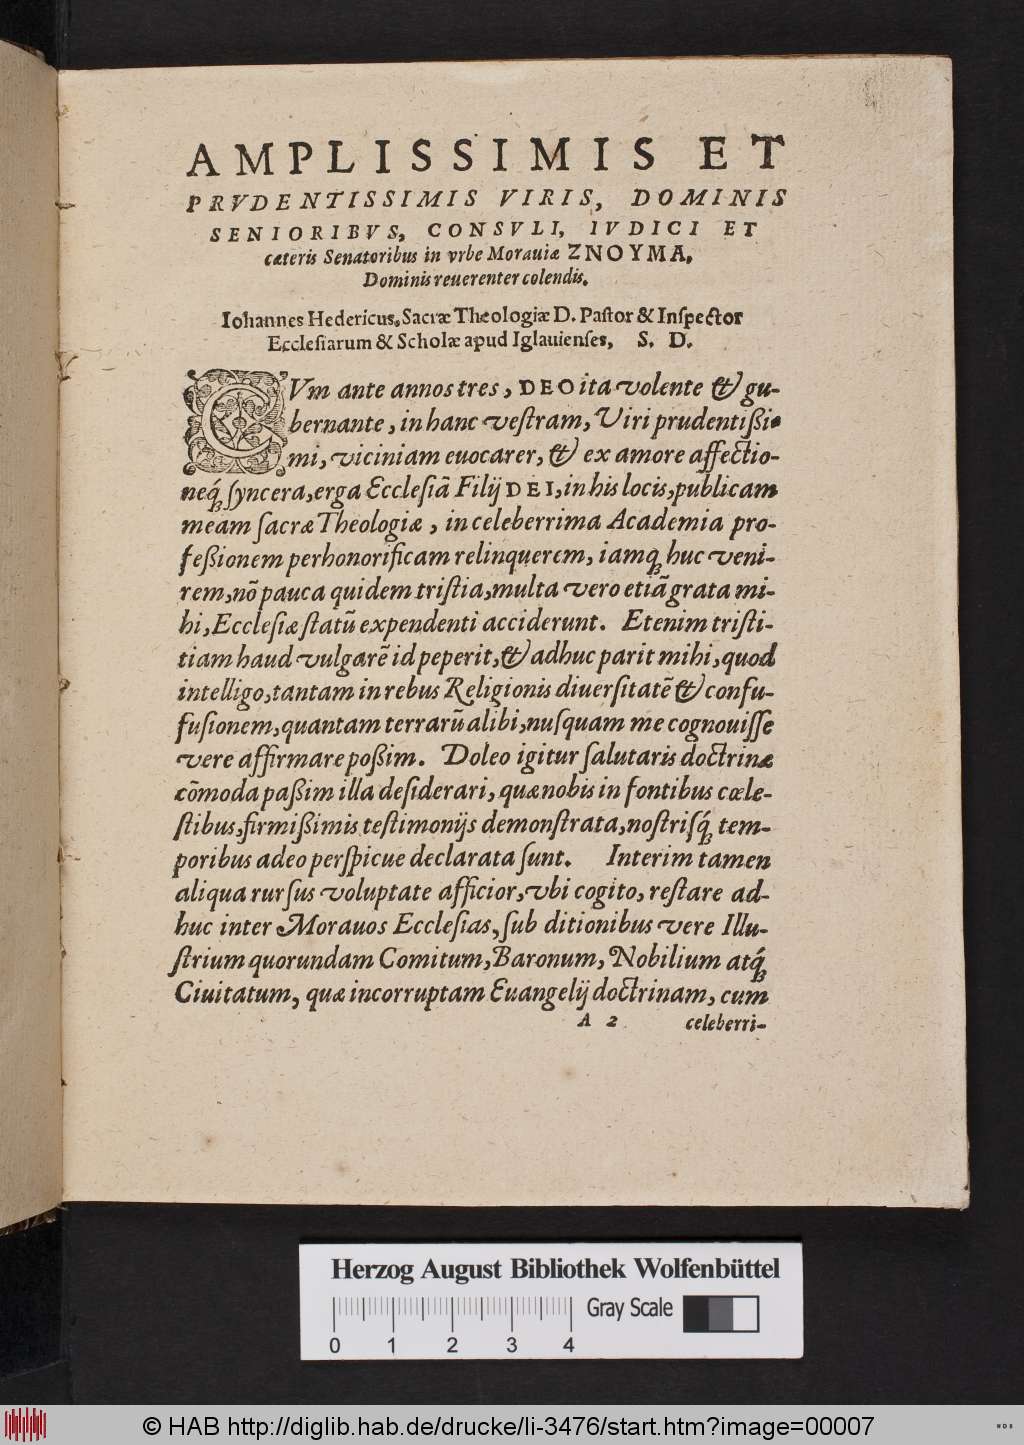 AMPLISSIMIS ET
PRVDENTISSIMIS VIRIS, DOMINIS
SENIORIBVS, CONSVLI, IVDICI ET
cæteris Senatoribus in vrbe Morauiæ ZNOYMA,
Dominis reuerenter colendis.
Iohannes Hedericus, Sacræ Theologiæ D. Pastor & Inspector
Ecclesiarum & Scholæ apud Iglauienses, S. D.
CVm ante annos tres, DEO ita volente & gu-
bernante, in hanc vestram, Viri prudentißi-
mi, viciniam euocarer, & ex amore affectio-
neq́; syncera, erga Ecclesiã Filij DEI, in his locis, publicam
meam sacræ Theologiæ, in celeberrima Academia pro-
feßionem perhonorificam relinquerem, iamq; huc veni-
rem, nõ pauca quidem tristia, multa vero etiã grata mi-
hi, Ecclesiæ statũ expendenti acciderunt. Etenim tristi-
tiam haud vulgarẽ id peperit, & adhuc parit mihi, quod
intelligo, tantam in rebus Religionis diuersitatẽ & confu-
fusionem, quantam terrarũ alibi, nusquam me cognouisse
vere affirmare poßim. Doleo igitur salutaris doctrinæ
cõmoda paßim illa desiderari, quæ nobis in fontibus cœle-
stibus, firmißimis testimonijs demonstrata, nostrisq́; tem-
poribus adeo perspicue declarata sunt. Interim tamen
aliqua rursus voluptate afficior, vbi cogito, restare ad-
huc inter Morauos Ecclesias, sub ditionibus vere Illu-
strium quorundam Comitum, Baronum, Nobilium atq́;
Ciuitatum, quæ incorruptam Euangelij doctrinam, cum
A 2 celeberri-
Herzog August Bibliothek Wolfenbüttel
Gray Scale
0 1 2 3 4
© HAB http://diglib.hab.de/drucke/li-3476/start.htm?image=00007